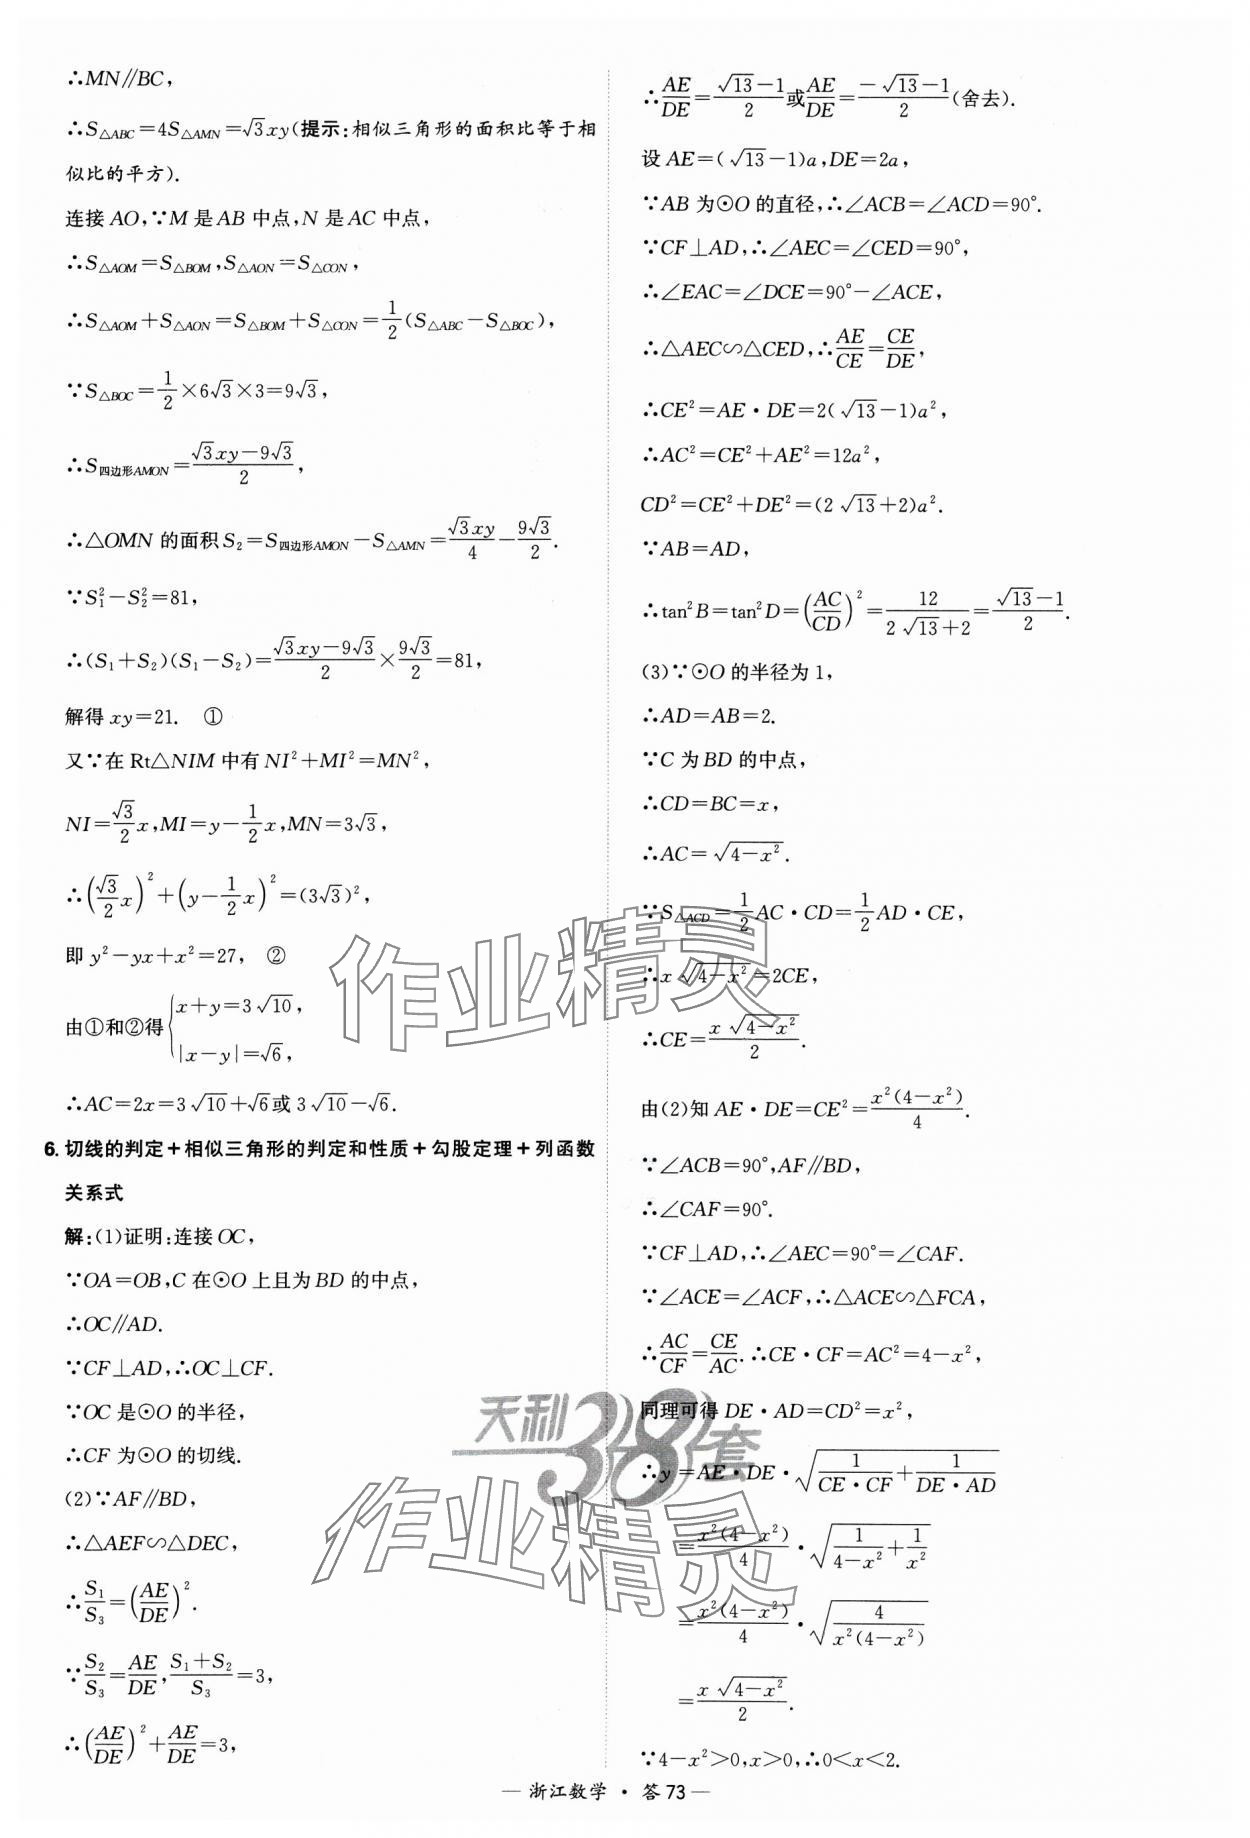 ∴MN∥BC，
∴S△ABC=4S△AMN=√3xy(提示:相似三角形的面积比等于相
似比的平方).
连接AO,∵M是AB中点,N是AC中点,
∴S△AOM=S△BOM,S△AON=S△CON,
∴S△AOM+S△AON=S△BOM+S△CON=1/2(S△ABC-S△BOC),
∵S△BOC=1/2×6√3×3=9√3,
∴S四边形AMON=(√3xy-9√3)/2,
∴△OMN的面积S₂=S四边形AMON-S△AMN=√3xy/4-9√3/2.
∵S₁²-S₂²=81,
∴(S₁+S₂)(S₁-S₂)=(√3xy-9√3)/2×9√3/2=81,
解得xy=21. ①
又∵在Rt△NIM中有NI²+MI²=MN²,
NI=√3/2x,MI=y-1/2x,MN=3√3,
∴(√3/2x)²+(y-1/2x)²=(3√3)²,
即y²-yx+x²=27, ②
由①和②得{x+y=3√10,
|x-y|=√6,
∴AC=2x=3√10+√6或3√10-√6.
6. 切线的判定+相似三角形的判定和性质+勾股定理+列函数
关系式
解:(1)证明:连接OC,
∵OA=OB,C在⊙O上且为BD的中点,
∴OC∥AD.
∵CF⊥AD,∴OC⊥CF.
∵OC是⊙O的半径,
∴CF为⊙O的切线.
(2)∵AF∥BD,
∴△AEF∽△DEC,
∴S₁/S₃=(AE/DE)².
∵S₂/S₃=AE/DE,(S₁+S₂)/S₃=3,
∴(AE/DE)²+AE/DE=3,
∴AE/DE=(√13-1)/2或AE/DE=(-√13-1)/2(舍去).
设AE=(√13-1)a,DE=2a,
∵AB为⊙O的直径,∴∠ACB=∠ACD=90°.
∵CF⊥AD,∴∠AEC=∠CED=90°,
∴∠EAC=∠DCE=90°-∠ACE,
∴△AEC∽△CED,∴AE/CE=CE/DE,
∴CE²=AE·DE=2(√13-1)a²,
∴AC²=CE²+AE²=12a²,
CD²=CE²+DE²=(2√13+2)a².
∵AB=AD,
∴tan²B=tan²D=(AC/CD)²=12/(2√13+2)=(√13-1)/2.
(3)∵⊙O的半径为1,
∴AD=AB=2.
∵C为BD的中点,
∴CD=BC=x,
∴AC=√(4-x²).
∵S△ACD=1/2AC·CD=1/2AD·CE,
∴x√(4-x²)=2CE,
∴CE=x√(4-x²)/2.
由(2)知AE·DE=CE²=x²(4-x²)/4.
∵∠ACB=90°,AF∥BD,
∴∠CAF=90°.
∵CF⊥AD,∴∠AEC=90°=∠CAF.
∵∠ACE=∠ACF,∴△ACE∽△FCA,
∴AC/CF=CE/AC.∴CE·CF=AC²=4-x²,
同理可得DE·AD=CD²=x²,
∴y=AE·DE·√(1/(CE·CF)+1/(DE·AD))
=x²(4-x²)/4·√(1/(4-x²)+1/x²)
=x²(4-x²)/4·√(4/(x²(4-x²)))
=x√(4-x²)/2.
∵4-x²>0,x>0,∴0<x<2.
作业精灵
天利38套
作业精灵
— 浙江数学·答73 —